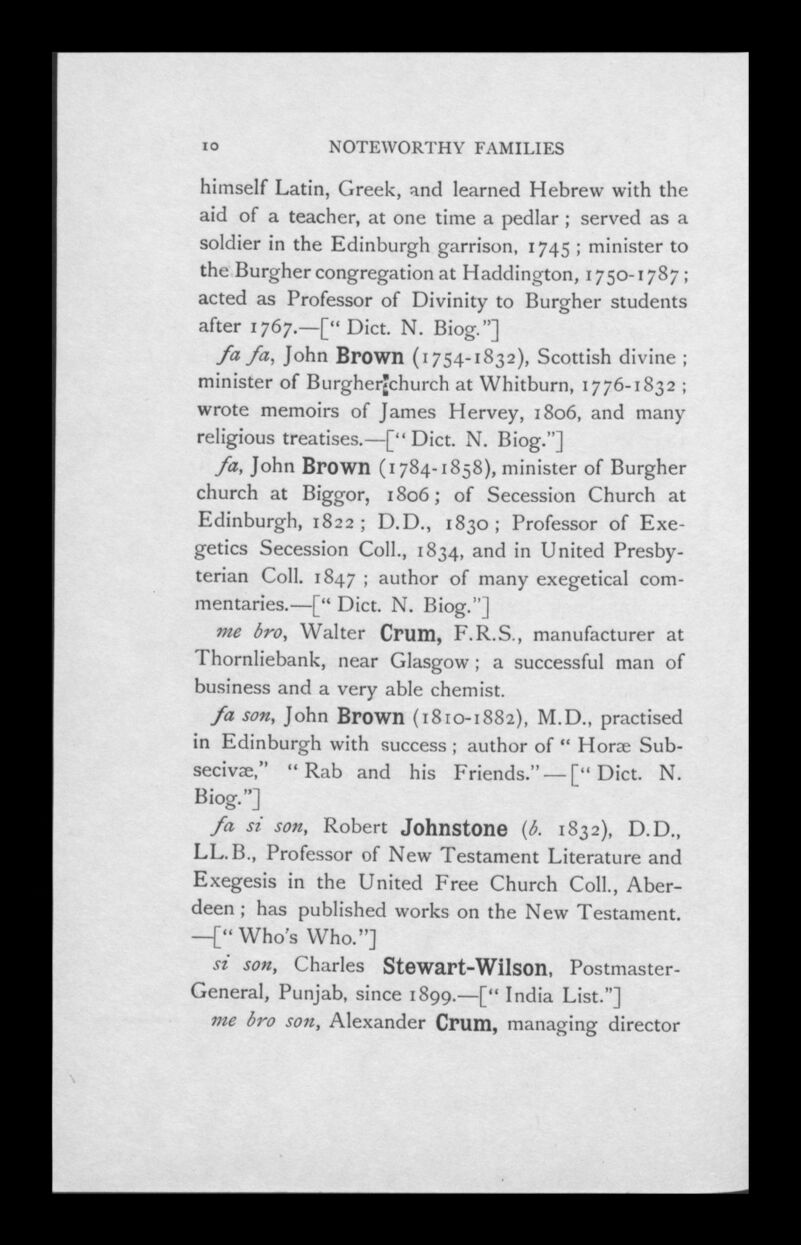 10 NOTEWORTHY FAMILIES
himself Latin, Greek, and learned Hebrew with the
aid of a teacher, at one time a pedlar ; served as a
soldier in the Edinburgh garrison, 1745 ; minister to
the Burgher congregation at Haddington, 1750-1787 ;
acted as Professor of Divinity to Burgher students
after 1767.—[“ Dict. N. Biog.”]
fa fa, John Brown (1754-1832), Scottish divine ;
minister of Burgher church at Whitburn, 1776-1832 ;
wrote memoirs of James Hervey, 1806, and many
religious treatises.—[“ Dict. N. Biog.”]
fa, John Brown (1784-1858), minister of Burgher
church at Biggor, 1806 ; of Secession Church at
Edinburgh, 1822 ; D.D., 1830 ; Professor of Exe-
getics Secession Coll., 1834, and in United Presby-
terian Coll. 1847 ; author of many exegetical com-
mentaries.—[“ Dict. N. Biog.”]
me bro, Walter Crum, F.R.S., manufacturer at
Thornliebank, near Glasgow ; a successful man of
business and a very able chemist.
fa son, John Brown (1810-1882), M.D., practised
in Edinburgh with success ; author of “ Horæ Sub-
secivæ,” “ Rab and his Friends.” — [“ Dict. N.
Biog.”]
fa si son, Robert Johnstone (b. 1832), D.D.,
LL.B., Professor of New Testament Literature and
Exegesis in the United Free Church Coll., Aber-
deen ; has published works on the New Testament.
—[“ Who’s Who.”]
si son, Charles Stewart-Wilson, Postmaster-
General, Punjab, since 1899.—[“ India List.”]
me bro son, Alexander Crum, managing director